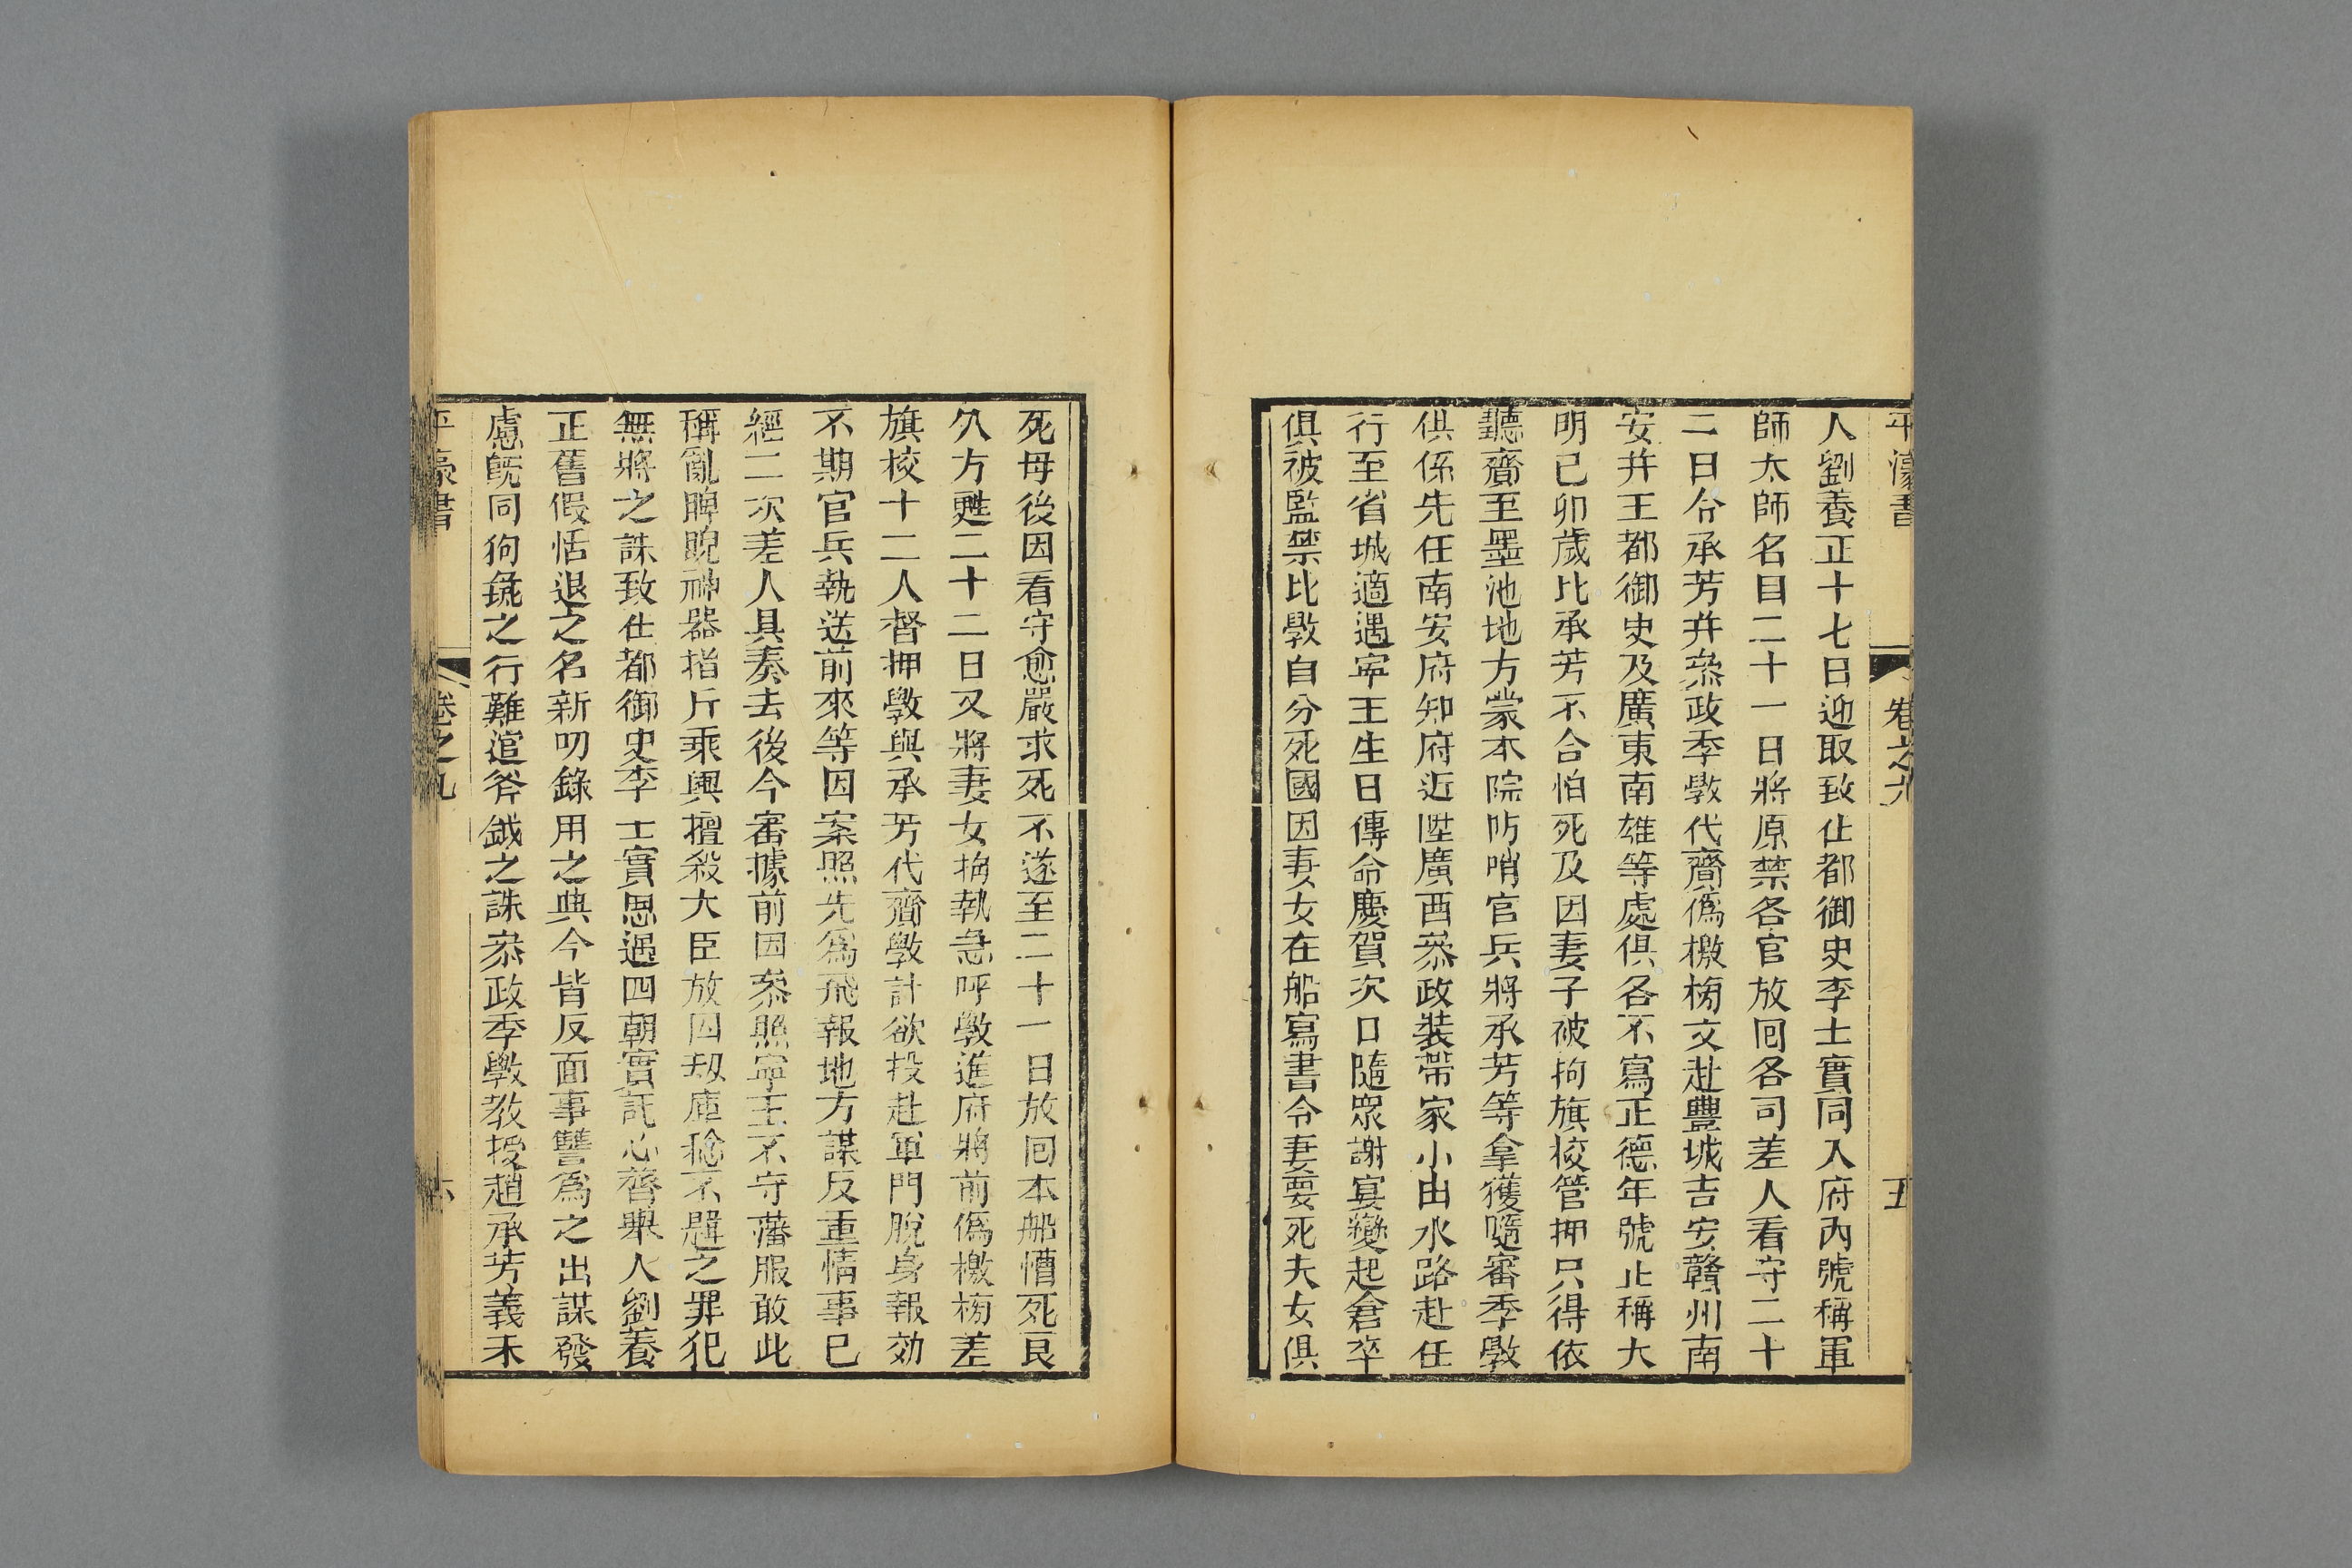 平濠書 卷之九 五
人劉養正十七日迎取致仕都御史李士實同入府內號稱軍
師太師名目二十一日將原禁各官放囘各司差人看守二十
二日令承芳并叅政季斆代齎僞檄榜文赴豐城吉安贛州南
安并王都御史及廣東南雄等處俱各不寫正德年號止稱大
明己卯歲比承芳不合怕死及因妻子被拘旗校管押只得依
聽齎至墨池地方蒙本院防哨官兵將承芳等拿獲隨審季斆
供係先任南安府知府近陞廣西叅政裝帶家小由水路赴任
行至省城適遇寜王生日傳命慶賀次日隨眾謝宴變起倉卒
俱被監禁比斆自分死國因妻女在船寫書令妻要死夫女俱
死母後因看守愈嚴求死不遂至二十一日放囘本船懵死良
久方甦二十二日又將妻女拘執急呼斆進府將前僞檄榜差
旗校十二人督押斆與承芳代齎斆計欲投赴軍門脫身報効
不期官兵執送前來等因案照先爲飛報地方謀反重情事已
經二次差人具奏去後今審據前因叅照寧王不守藩服敢此
稱亂睥睨神器指斥乘輿擅殺大臣放囚刼庫稔不韙之罪犯
無將之誅致仕都御史李士實恩遇四朝實託心膂舉人劉養
正舊假恬退之名新叨錄用之典今皆反面事讐爲之出謀發
慮既同狗彘之行難逭斧鉞之誅叅政季斆教授趙承芳義未
平濠書 卷之九 六